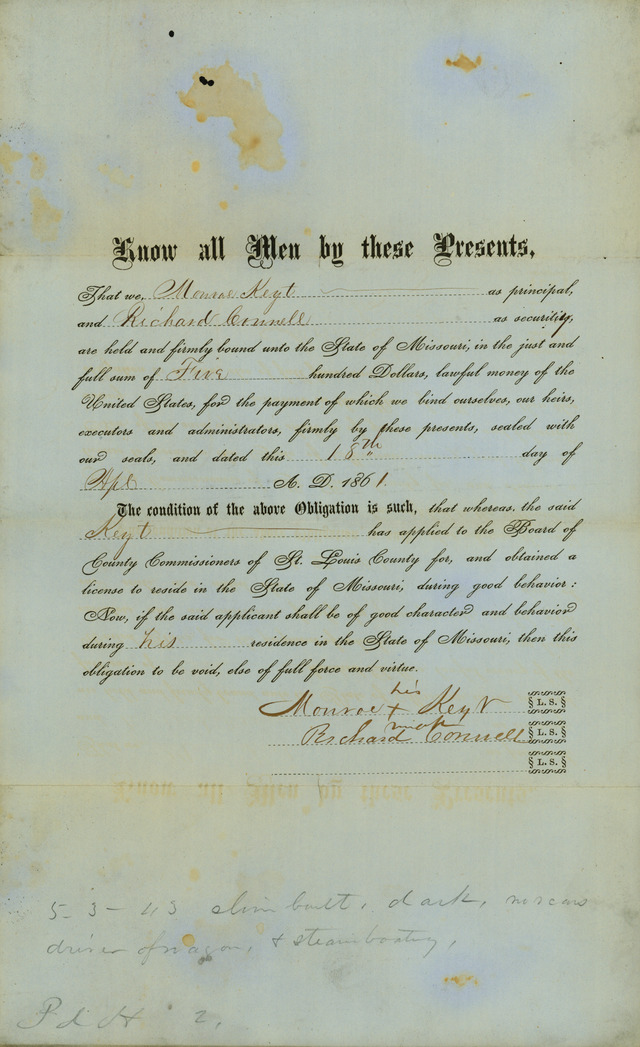 Know all Men by these Presents,
That we, Monroe Keyt as principal,
and Richard Connell as security,
are held and firmly bound unto the State of Missouri, in the just and
full sum of Five hundred Dollars, lawful money of the
United States, for the payment of which we bind ourselves, our heirs,
executors and administrators, firmly by these presents, sealed with
our seals, and dated this 18th day of
Apl A. D. 1861.
The condition of the above Obligation is such, that whereas, the said
Keyt has applied to the Board of
County Commissioners of St. Louis County for, and obtained a
license to reside in the State of Missouri, during good behavior:
Now, if the said applicant shall be of good character and behavior
during his residence in the State of Missouri, then this
obligation to be void, else of full force and virtue.
his
Monroe + Keyt L. S.
mark
Richard Connell L. S.
L. S.
5-3- 43 slim built, dark,
driver of wagon, & steamboating,
2,